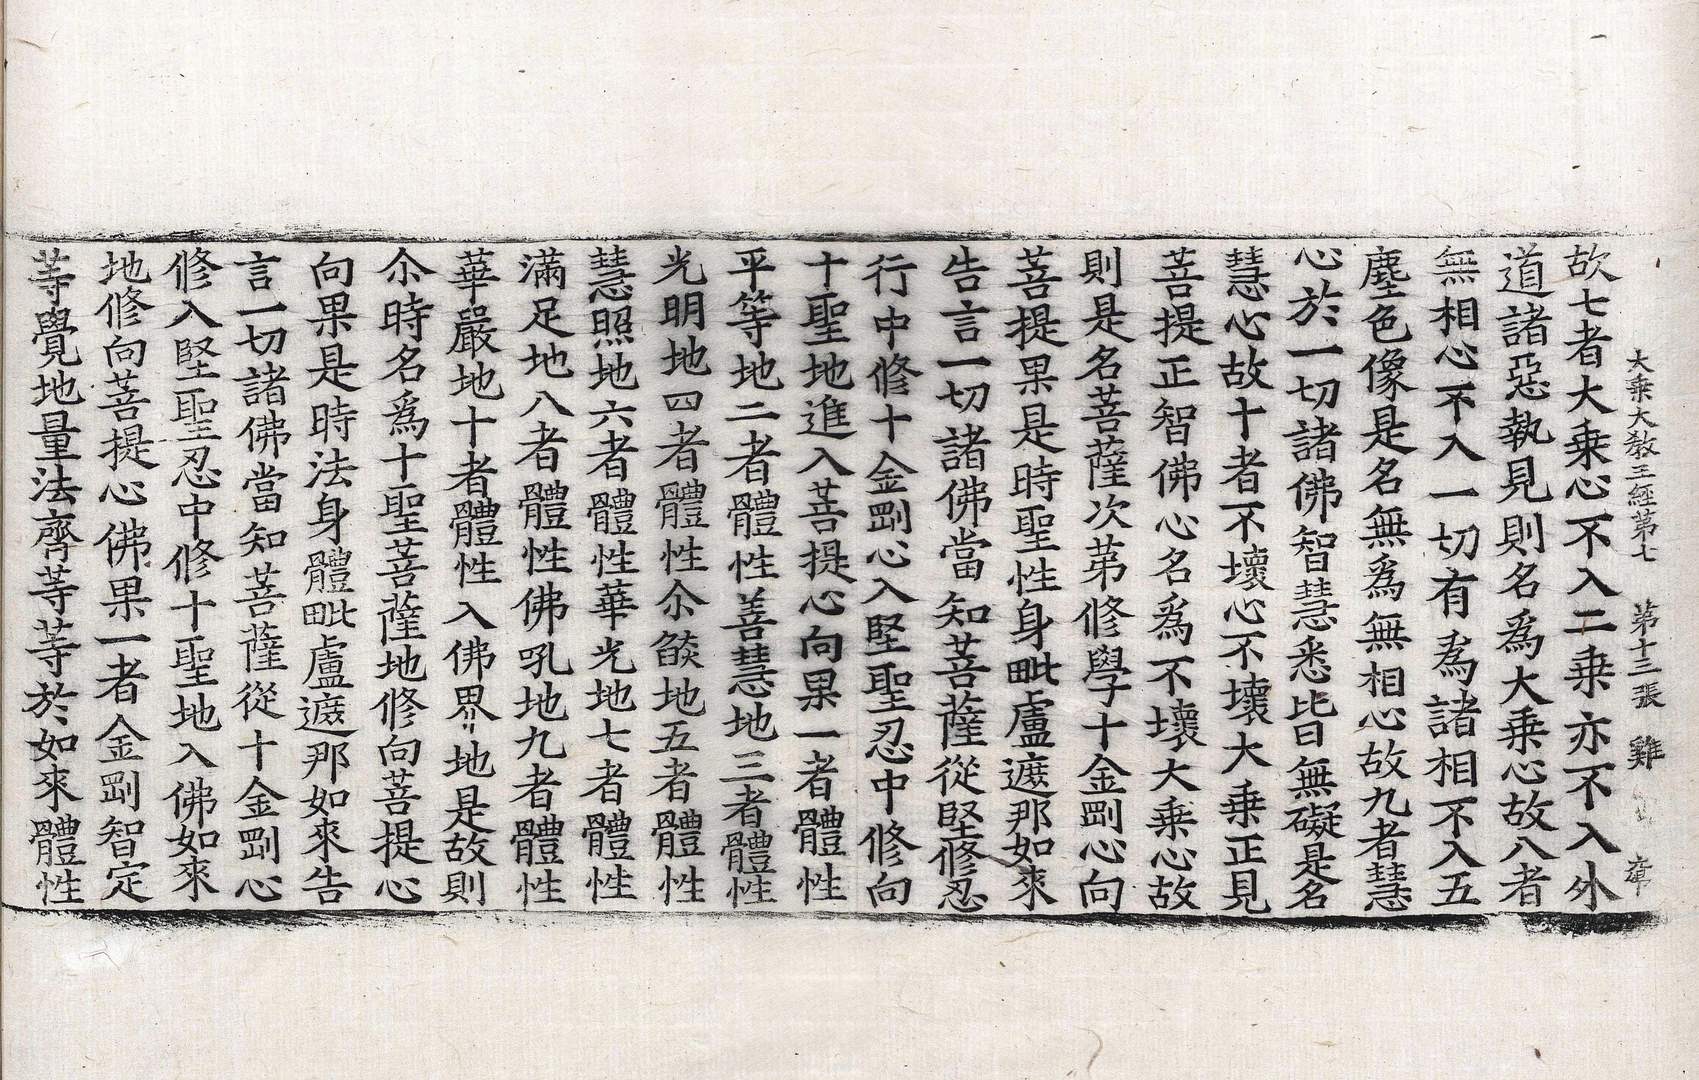 大乗大教王經第七　第十三張　雞
故七者大乗心不入二乗亦不入外
道諸惡執見則名爲大乗心故八者
無相心不入一切有爲諸相不入五
塵色像是名無爲無相心故九者慧
心於一切諸佛智慧悉皆無礙是名
慧心故十者不壞心不壞大乗正見
菩提正智佛心名爲不壞大乗心故
則是名菩薩次苐修學十金剛心向
菩提果是時聖性身毗盧遮那如來
告言一切諸佛當知菩薩從堅修忍
行中修十金剛心入堅聖忍中修向
十聖地進入菩提心向果一者體性
平等地二者體性善慧地三者體性
光明地四者體性尒燄地五者體性
慧照地六者體性華光地七者體性
滿足地八者體性佛吼地九者體性
華嚴地十者體性入佛界地是故則
尒時名爲十聖菩薩地修向菩提心
向果是時法身體毗盧遮那如來告
言一切諸佛當知菩薩從十金剛心
修入堅聖忍中修十聖地入佛如來
地修向菩提心佛果一者金剛智定
等覺地量法齊等等於如來體性